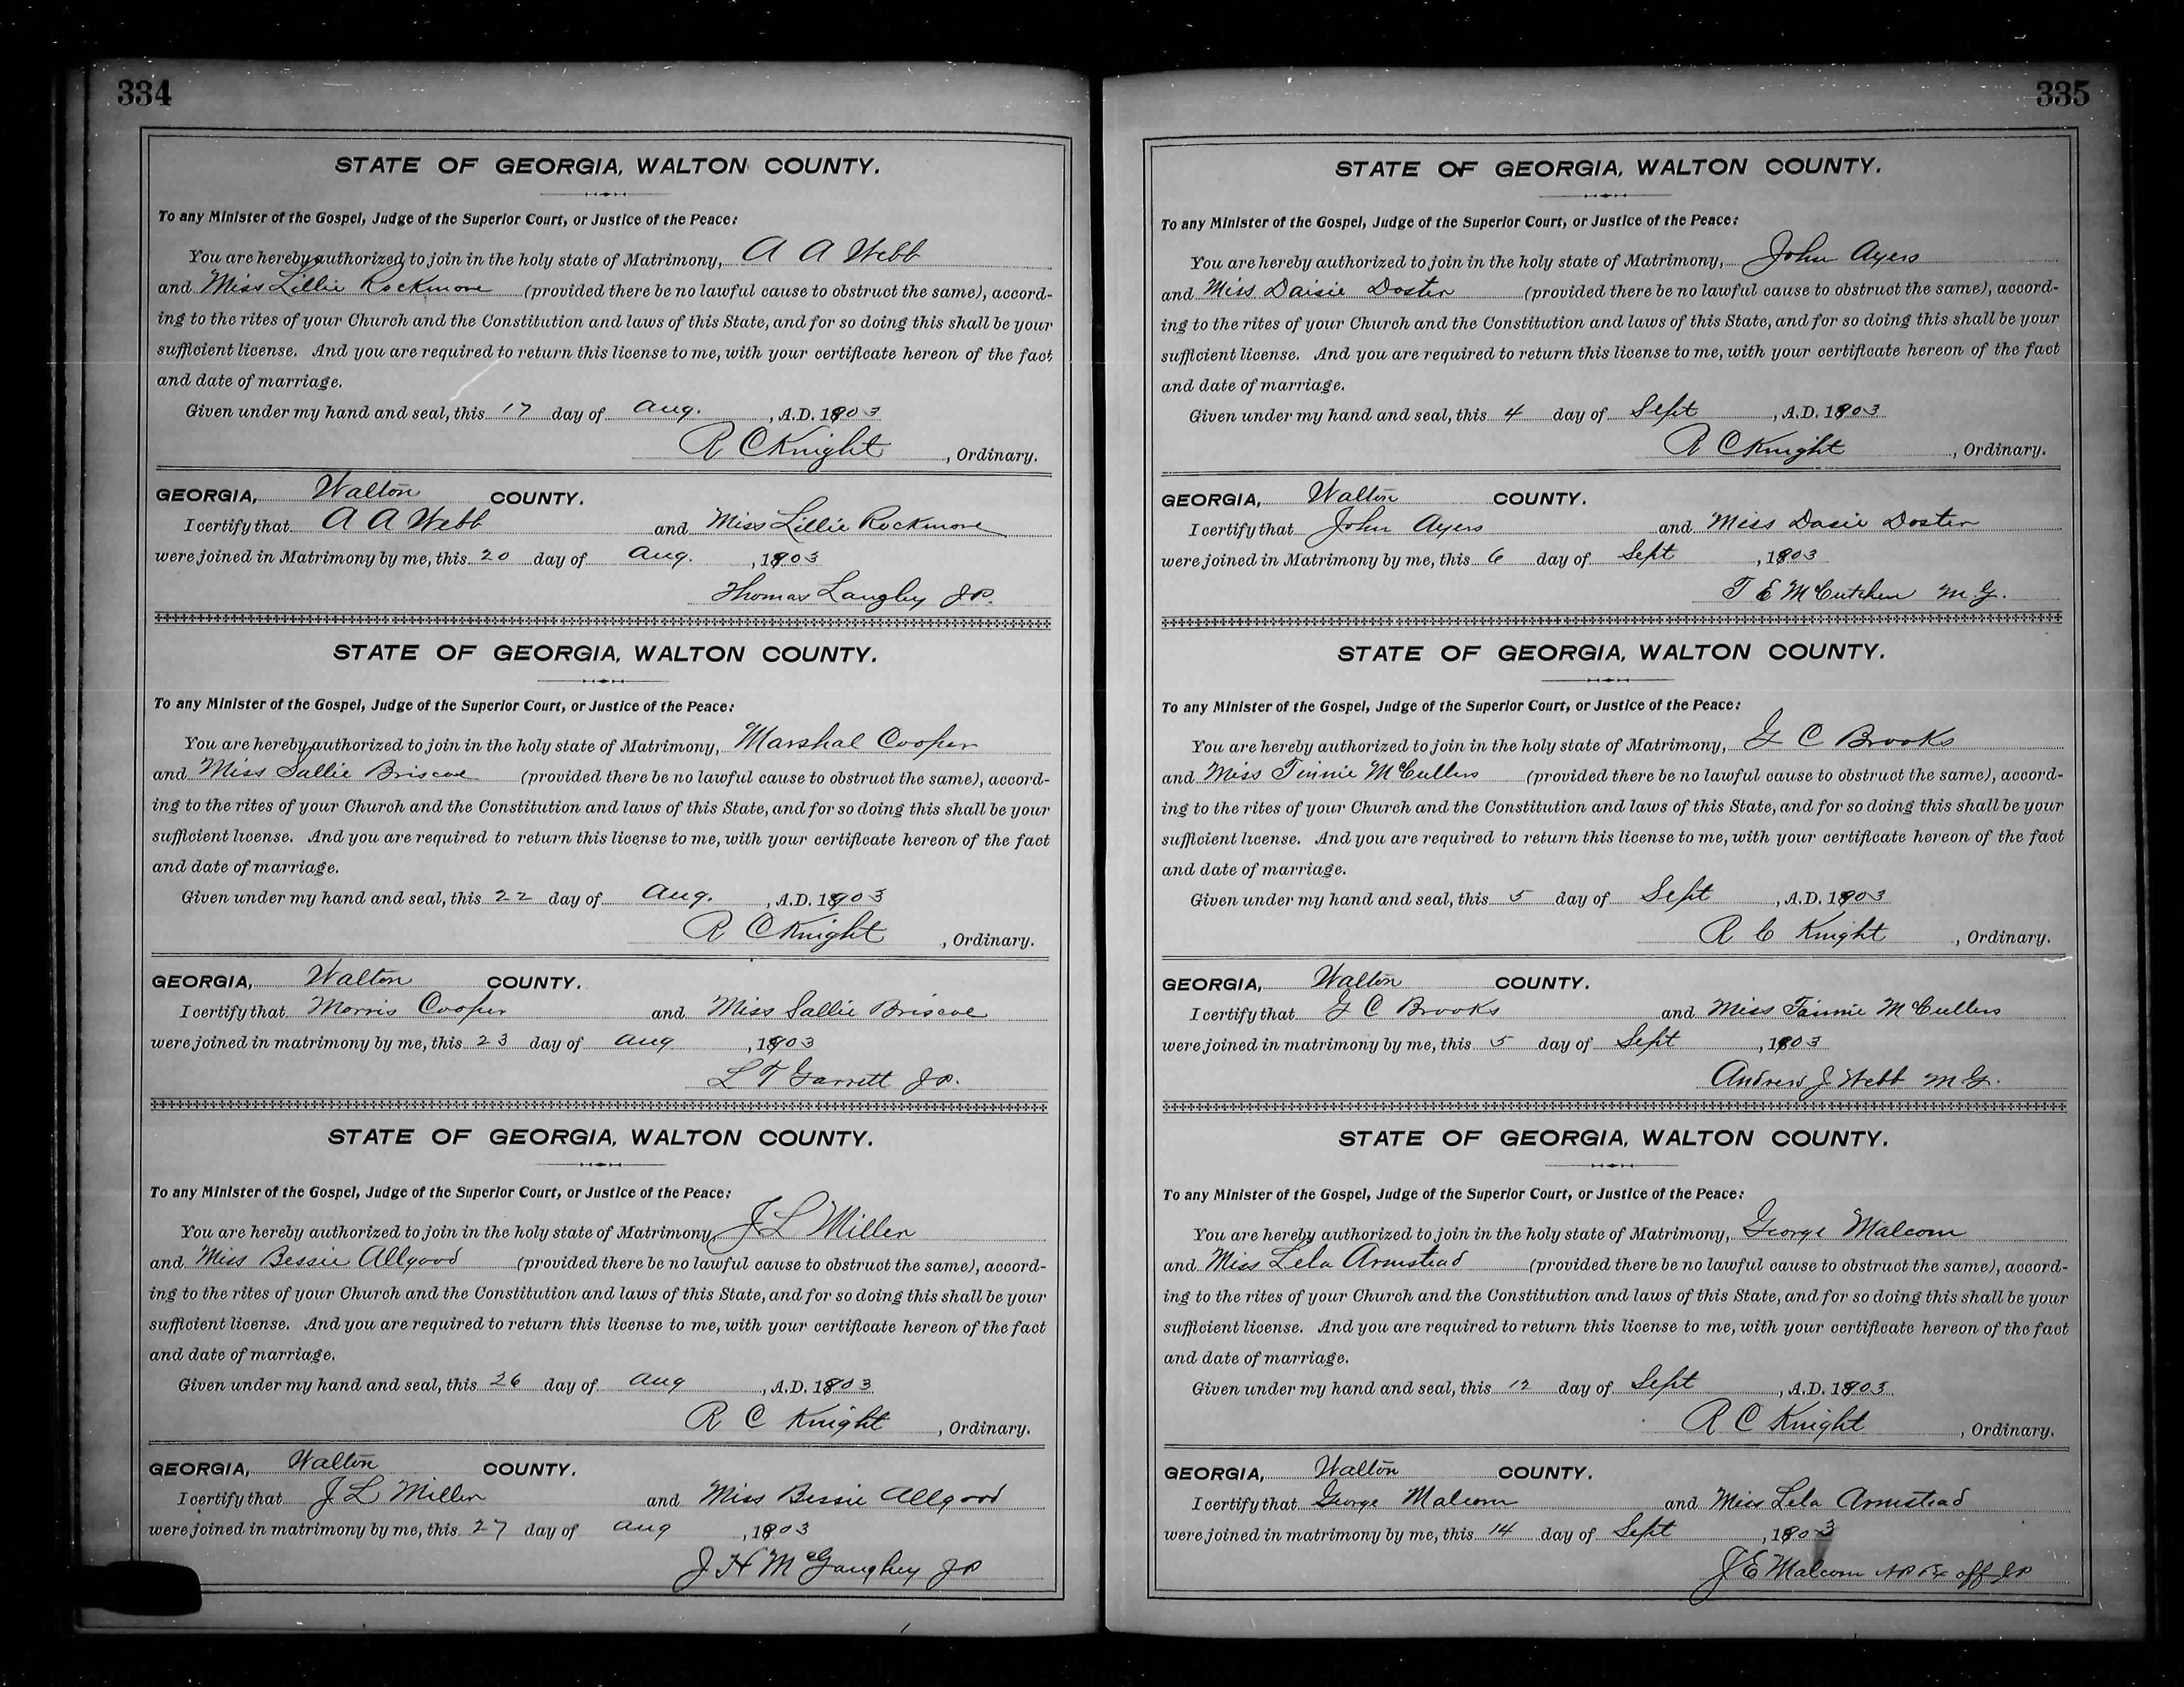 334
STATE OF GEORGIA, WALTON COUNTY.
To any Minister of the Gospel, Judge of the Superior Court, or Justice of the Peace:
You are hereby authorized to join in the holy state of Matrimony, A A Webb
and Miss Lillie Rockmore (provided there be no lawful cause to obstruct the same), accord-
ing to the rites of your Church and the Constitution and laws of this State, and for so doing this shall be your
sufficient license. And you are required to return this license to me, with your certificate hereon of the fact
and date of marriage.
Given under my hand and seal, this 17 day of Aug. , A.D. 1903
R C Knight , Ordinary.
GEORGIA, Walton COUNTY.
I certify that A A Webb and Miss Lillie Rockmore
were joined in Matrimony by me, this 20 day of Aug. , 1903
Thomas Langley J.P.
STATE OF GEORGIA, WALTON COUNTY.
To any Minister of the Gospel, Judge of the Superior Court, or Justice of the Peace:
You are hereby authorized to join in the holy state of Matrimony, Marshal Cooper
and Miss Sallie Briscoe (provided there be no lawful cause to obstruct the same), accord-
ing to the rites of your Church and the Constitution and laws of this State, and for so doing this shall be your
sufficient license. And you are required to return this license to me, with your certificate hereon of the fact
and date of marriage.
Given under my hand and seal, this 22 day of Aug. , A.D. 1903
R C Knight , Ordinary.
GEORGIA, Walton COUNTY.
I certify that Morris Cooper and Miss Sallie Briscoe
were joined in matrimony by me, this 23 day of Aug , 1903
L T Garrett J.P.
STATE OF GEORGIA, WALTON COUNTY.
To any Minister of the Gospel, Judge of the Superior Court, or Justice of the Peace:
You are hereby authorized to join in the holy state of Matrimony, J L Miller
and Miss Bessie Allgood (provided there be no lawful cause to obstruct the same), accord-
ing to the rites of your Church and the Constitution and laws of this State, and for so doing this shall be your
sufficient license. And you are required to return this license to me, with your certificate hereon of the fact
and date of marriage.
Given under my hand and seal, this 26 day of Aug , A.D. 1903
R C Knight , Ordinary.
GEORGIA, Walton COUNTY.
I certify that J L Miller and Miss Bessie Allgood
were joined in matrimony by me, this 27 day of Aug , 1903
J H McGaughey JP
335
STATE OF GEORGIA, WALTON COUNTY.
To any Minister of the Gospel, Judge of the Superior Court, or Justice of the Peace:
You are hereby authorized to join in the holy state of Matrimony, John Ayers
and Miss Daisie Doster (provided there be no lawful cause to obstruct the same), accord-
ing to the rites of your Church and the Constitution and laws of this State, and for so doing this shall be your
sufficient license. And you are required to return this license to me, with your certificate hereon of the fact
and date of marriage.
Given under my hand and seal, this 4 day of Sept , A.D. 1903
R C Knight , Ordinary.
GEORGIA, Walton COUNTY.
I certify that John Ayers and Miss Dasie Doster
were joined in Matrimony by me, this 6 day of Sept , 1903
T E McCutchen M.G.
STATE OF GEORGIA, WALTON COUNTY.
To any Minister of the Gospel, Judge of the Superior Court, or Justice of the Peace:
You are hereby authorized to join in the holy state of Matrimony, G C Brooks
and Miss Tinnie McCullers (provided there be no lawful cause to obstruct the same), accord-
ing to the rites of your Church and the Constitution and laws of this State, and for so doing this shall be your
sufficient license. And you are required to return this license to me, with your certificate hereon of the fact
and date of marriage.
Given under my hand and seal, this 5 day of Sept , A.D. 1903
R C Knight , Ordinary.
GEORGIA, Walton COUNTY.
I certify that G C Brooks and Miss McCullers
were joined in matrimony by me, this 5 day of Sept , 1903
Andrew J. Webb M.G.
STATE OF GEORGIA, WALTON COUNTY.
To any Minister of the Gospel, Judge of the Superior Court, or Justice of the Peace:
You are hereby authorized to join in the holy state of Matrimony, George Malcom
and Miss Lela Armstead (provided there be no lawful cause to obstruct the same), accord-
ing to the rites of your Church and the Constitution and laws of this State, and for so doing this shall be your
sufficient license. And you are required to return this license to me, with your certificate hereon of the fact
and date of marriage.
Given under my hand and seal, this 12 day of Sept , A.D. 1903
R C Knight , Ordinary.
GEORGIA, Walton COUNTY.
I certify that George Malcom and Miss Lela Armstead
were joined in matrimony by me, this 14 day of Sept , 1903
J E Malcom NP Ex off JP